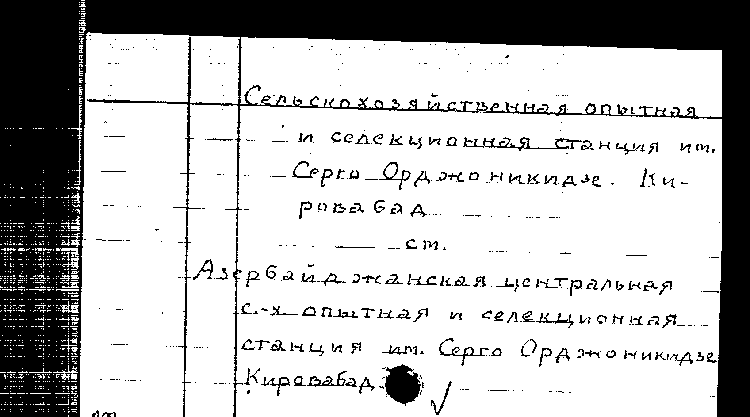 Сельскохозяйственная опытная
и селекционная станция им.
Серго Орджоникидзе. Ки-
ровабад
ст.
Азербайджанская центральная
с.-х опытная и селекционная
станция им. Серго Орджоникидзе
Кировабад